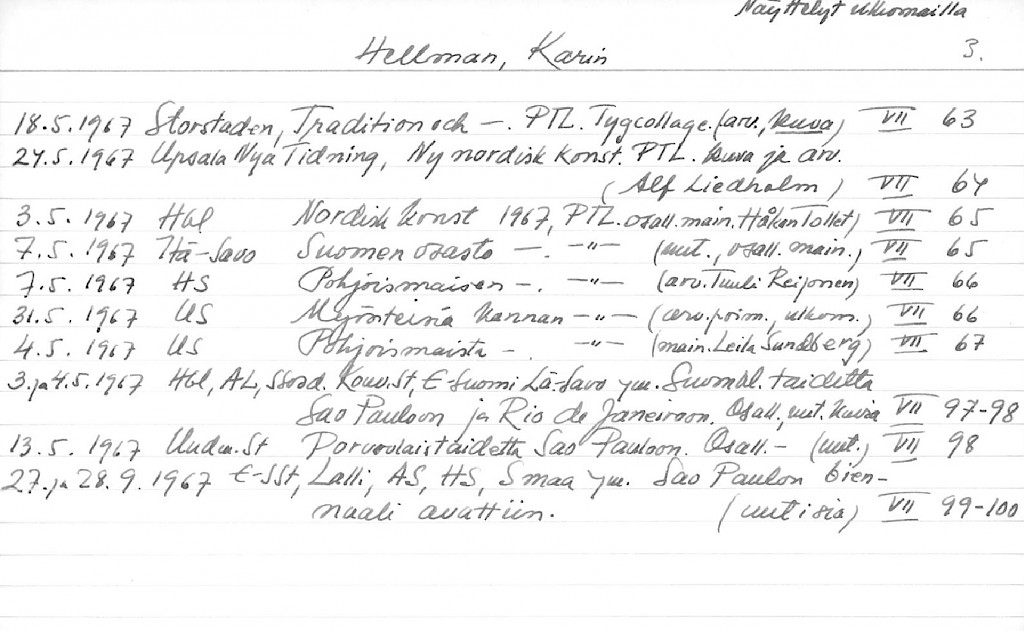 Näyttelyt ulkomailla
Hellman, Karin 3.
18.5.1967 Storstaden, Tradition och —. PTL. Tygcollage. (arv., kuva) VII 63
24.5.1967 Upsala Nya Tidning, Ny nordisk konst. PTL. kuva ja arv.
(Alf Liedholm) VII 64
3.5.1967 Hbl Nordisk konst 1967, PTL. osall. main. Håkan Tollet) VII 65
7.5.1967 Itä-Savo Suomen osasto —. —"— (uut., osall. main.,) VII 65
7.5.1967 HS Pohjoismaisen —. —"— (arv. Tuuli Reijonen) VII 66
31.5.1967 US Myönteinä kannan —"— (arv. poim., ulkom.,) VII 66
4.5.1967 US Pohjoismaista —. —"— (main. Leila Sundberg) VII 67
3. ja 4.5.1967 Hbl, AL, Kouv. St, E-Suomi Lä-Savo ym. Suomal. taidetta
Sao Pauloon ja Rio de Janeiroon. Osall. uut. kuvia VII 97-98
13.5.1967 Uudm. St Porvoolaistaidetta Sao Pauloon. Osall. — (uut.) VII 98
27. ja 28.9.1967 E-SSt, Lalli, AS, HS, S maa ym. Sao Paulon bien-
naali avattiin. (uutisia) VII 99-100